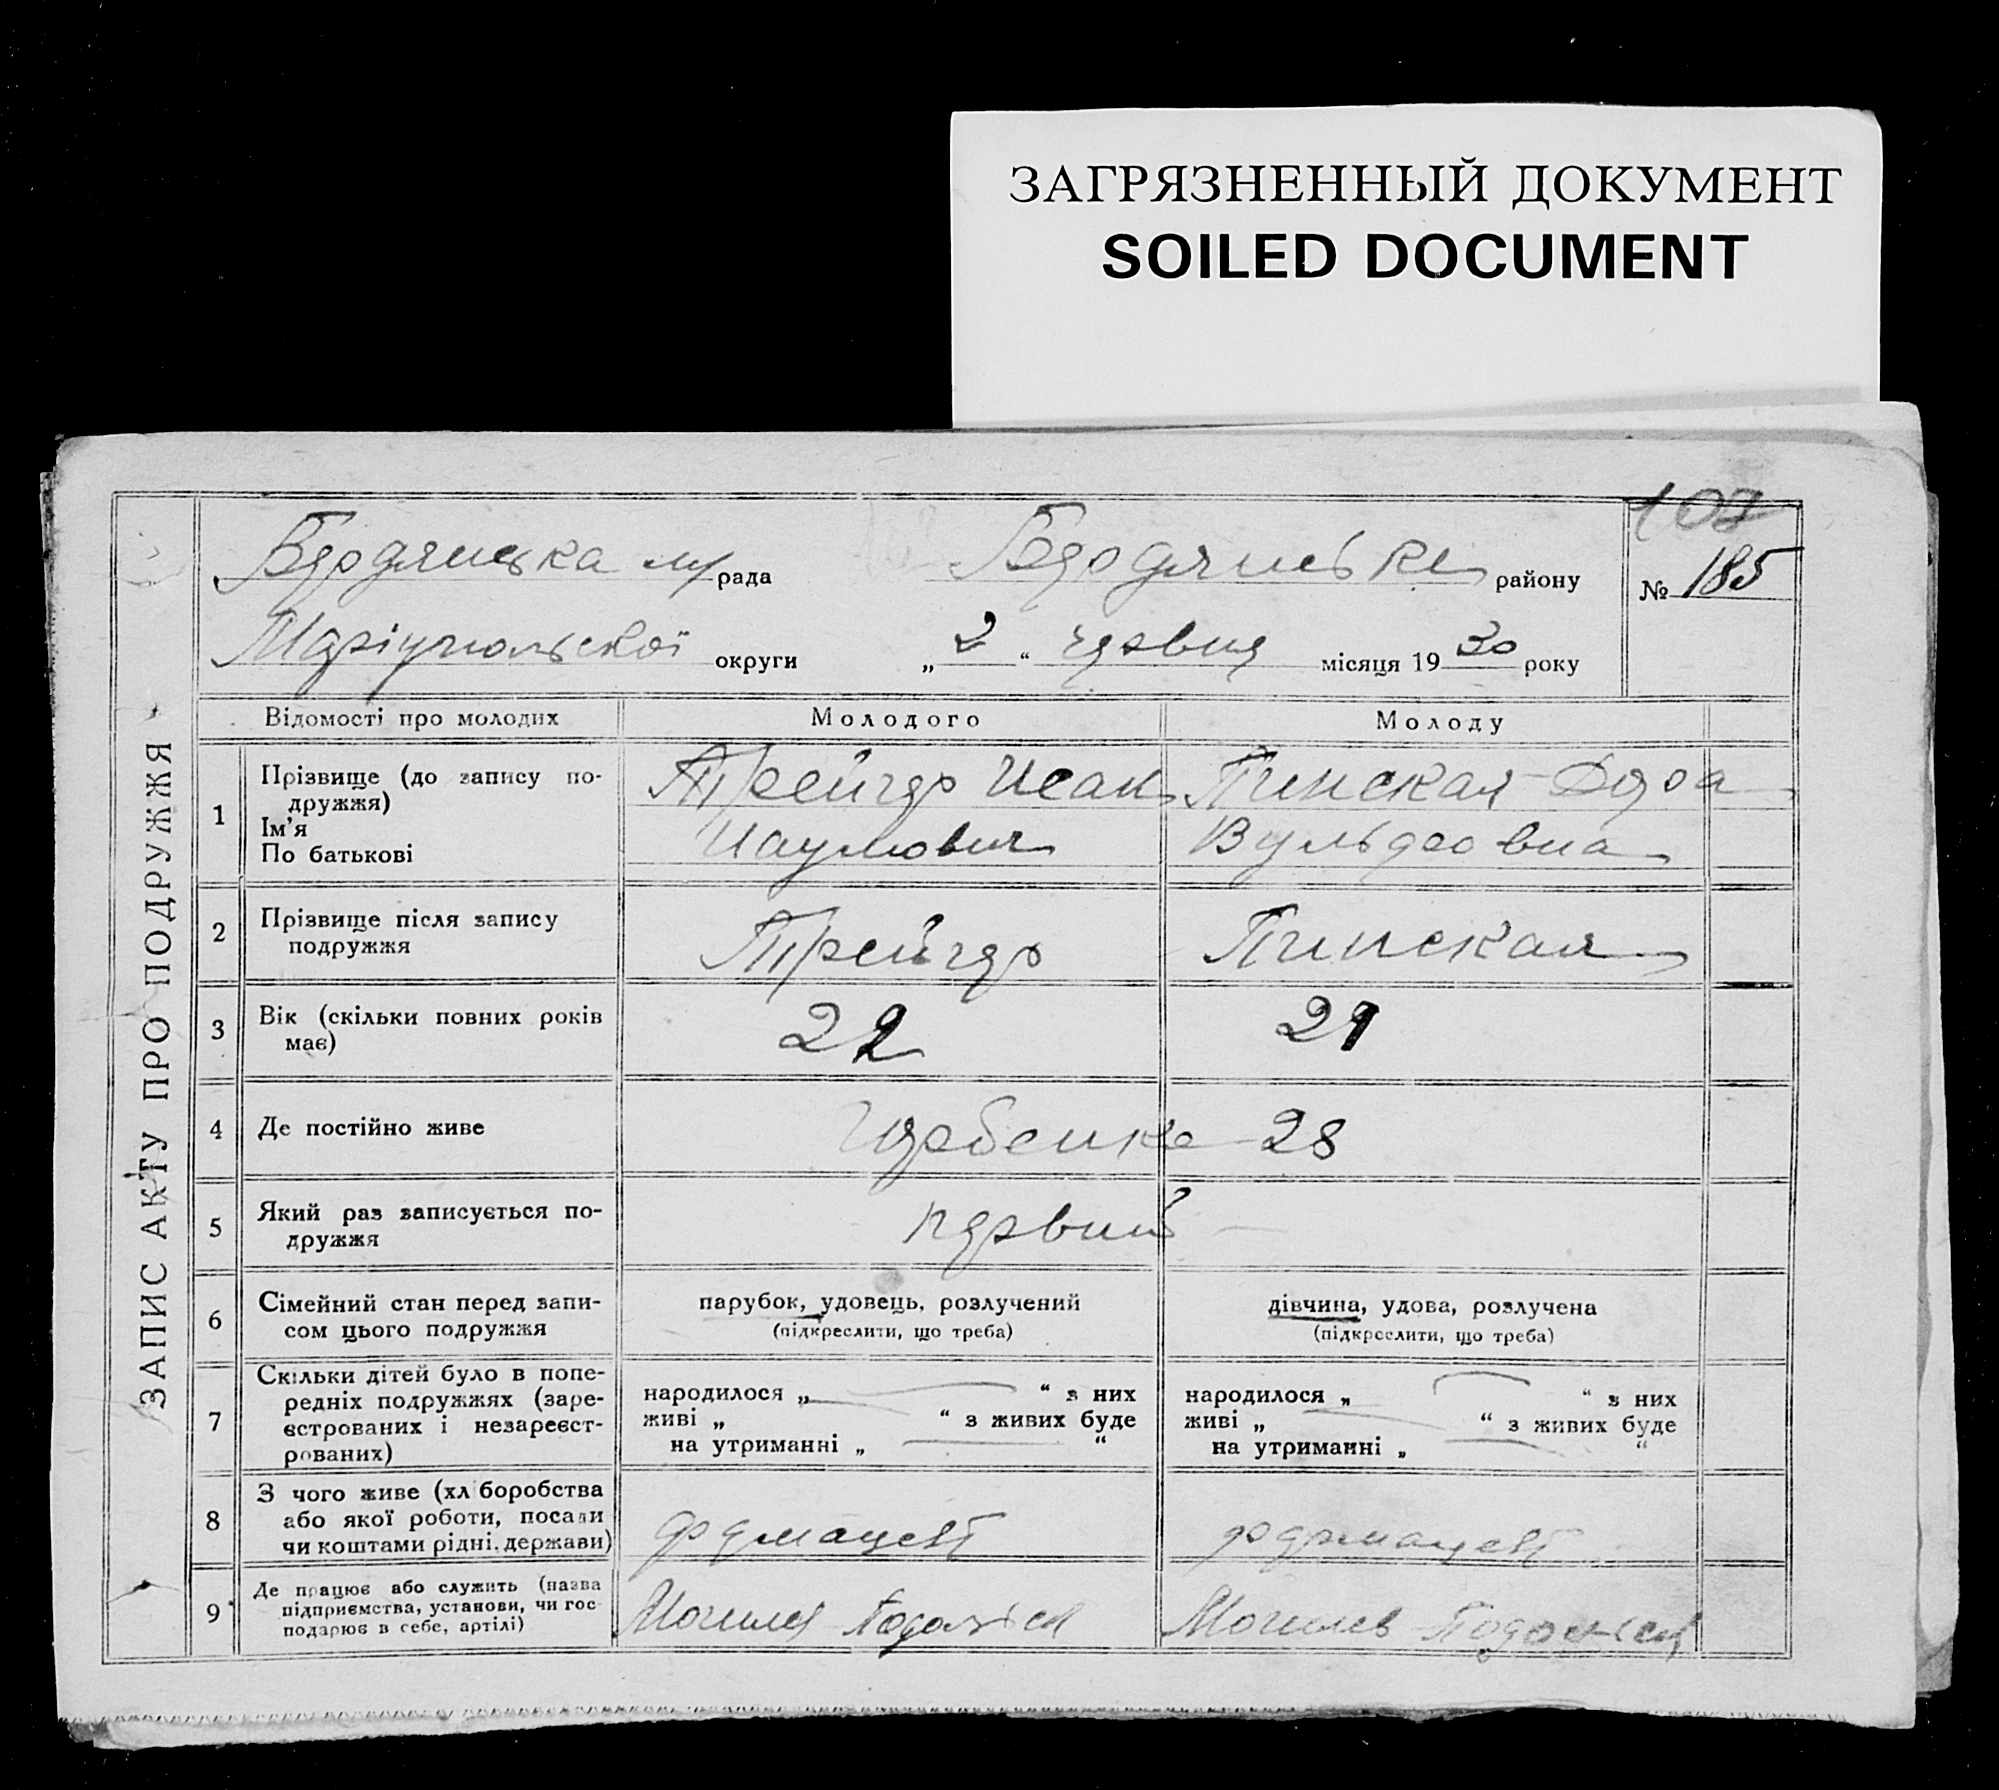 ЗАГРЯЗНЕННЫЙ ДОКУМЕНТ
SOILED DOCUMENT
107
Бердянська м/рада Бердянське району № 185
Маріупольської округи „ 2 “ червня місяця 1930 року
ЗАПИС АКТУ ПРО ПОДРУЖЖЯ
Відомості про молодих Молодого Молоду
1 Прізвище (до запису по-
дружжя)
Ім'я
По батькові
Трейгер Исак
Наумович
Пинская Дора
Вульфовна
2 Прізвище після запису
подружжя
Трейгер Пинская
3 Вік (скільки повних років
має)
22 21
4 Де постійно живе 28
5 Який раз записується по-
дружжя
первий
6 Сімейний стан перед запи-
сом цього подружжя
парубок, удовець, розлучений
(підкреслити, що треба)
дівчина, удова, розлучена
(підкреслити, що треба)
7 Скільки дітей було в попе-
редніх подружжях (заре-
єстрованих і незареєст-
рованих)
народилося „ “ з них
живі „ “ з живих буде
на утриманні „ “
народилося „ “ з них
живі „ “ з живих буде
на утриманні „ “
8 З чого живе (хліборобства
або якої роботи, посади
чи коштами рідні, держави)
фармацевт фармацевт
9 Де працює або служить (назва
підприємства, установи, чи гос-
подарює в себе, артілі)
Могилев Подольск Могилев Подольск